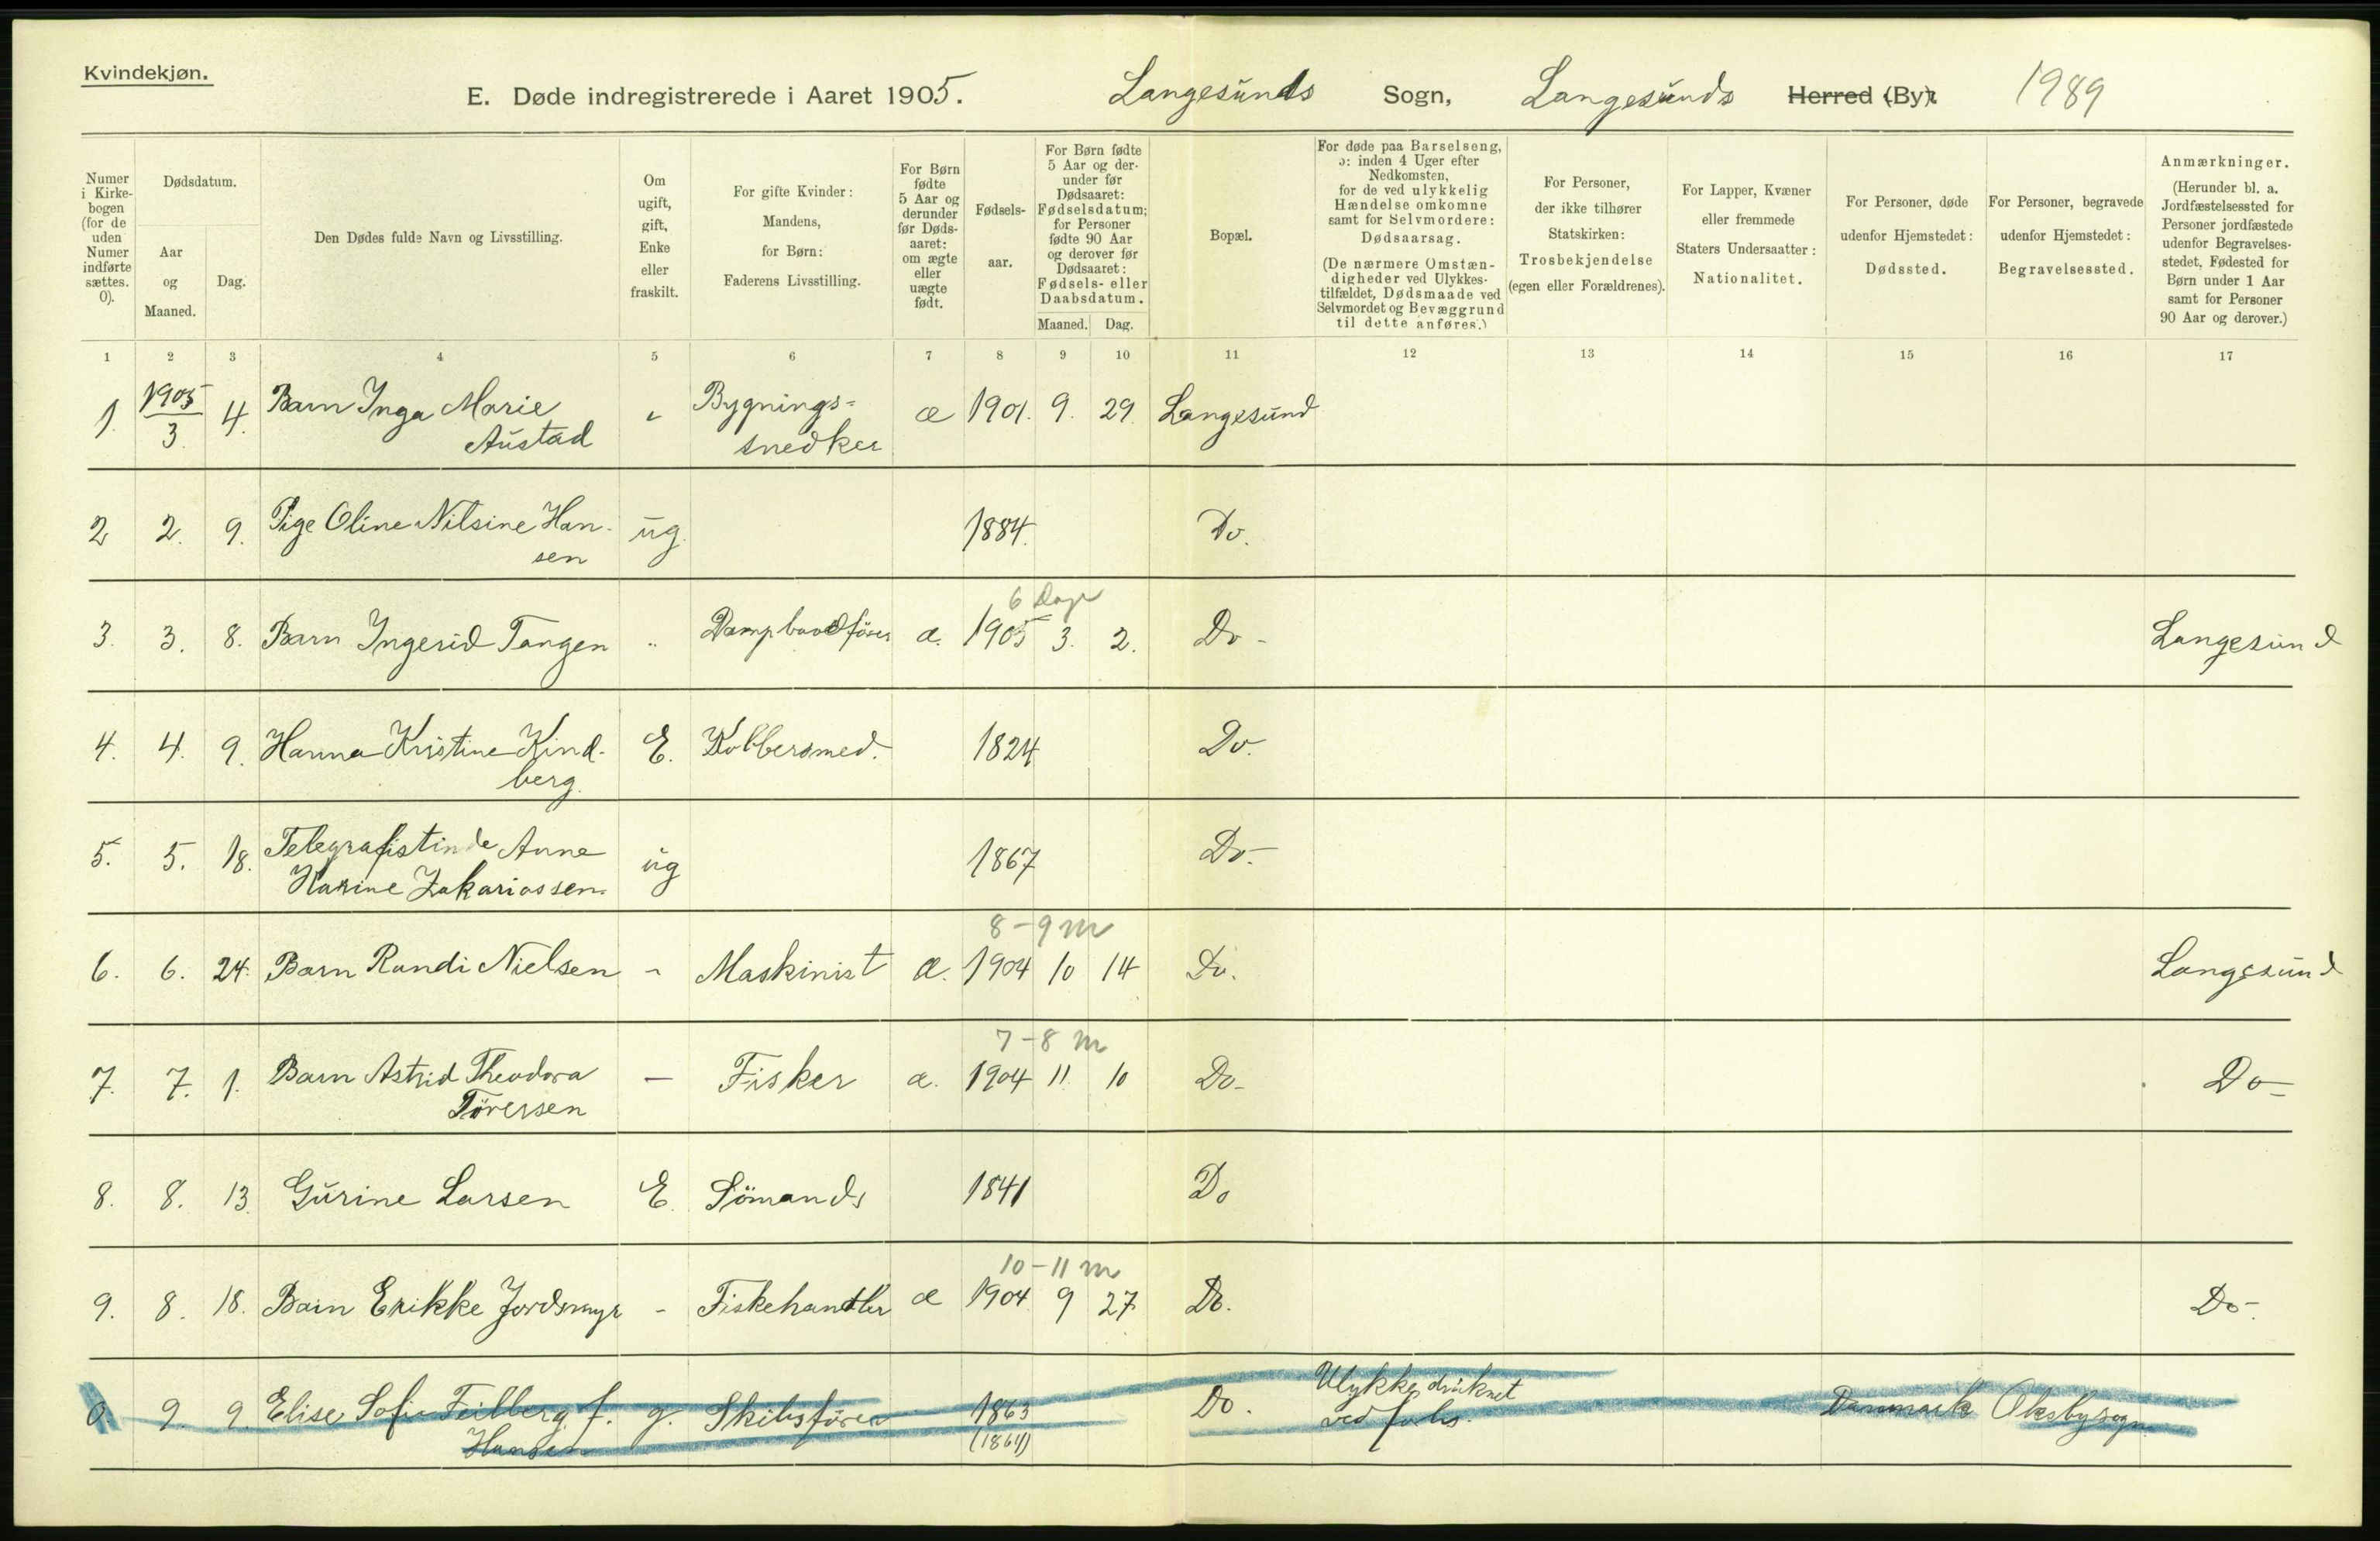 Kvindekjøn.
E. Døde indregistrerede i Aaret 1905. Langesunds Sogn, Langesunds Herred (By). 1989
Numer i Kirke-bogen (for de uden Numer indførte sættes. 0).
Dødsdatum.
Aar og Maaned.
Dag.
Den Dødes fulde Navn og Livsstilling.
Om ugift, gift, Enke eller fraskilt.
For gifte Kvinder: Mandens, for Børn: Faderens Livsstilling.
For Børn fødte 5 Aar og derunder før Døds-aaret: om ægte eller uægte født.
Fødsels-aar.
For Børn fødte 5 Aar og der-under før Dødsaaret: Fødselsdatum; for Personer fødte 90 Aar og derover før Dødsaaret: Fødsels- eller Daabsdatum.
Maaned. Dag.
Bopæl.
For døde paa Barselseng, ɔ: inden 4 Uger efter Nedkomsten, for de ved ulykkelig Hændelse omkomne samt for Selvmordere: Dødsaarsag. (De nærmere Omstæn-digheder ved Ulykkes-tilfældet, Dødsmaade ved Selvmordet og Bevæggrund til dette anføres.)
For Personer, der ikke tilhører Statskirken: Trosbekjendelse (egen eller Forældrenes).
For Lapper, Kvæner eller fremmede Staters Undersaatter: Nationalitet.
For Personer, døde udenfor Hjemstedet: Dødssted.
For Personer, begravede udenfor Hjemstedet: Begravelsessted.
Anmærkninger. (Herunder bl. a. Jordfæstelsessted for Personer jordfæstede udenfor Begravelses-stedet, Fødested for Børn under 1 Aar samt for Personer 90 Aar og derover.)
1 2 3 4 5 6 7 8 9 10 11 12 13 14 15 16 17
1. 1905 3 4. Barn Inga Marie Austad " Bygnings= snedker æ 1901. 9. 29. Langesund
2 2. 9. Pige Oline Nilsine Han-sen ug. 1884. Do.
6 Dage
3. 3. 8. Barn Ingerid Tangen " Dampbaadfører æ. 1905 3. 2. Do - Langesund
4. 4. 9. Hanna Kristine Kind-berg. E. Kobbersmed. 1824 Do.
5. 5. 18. Telegrafistinde Anne Karine Zakariassen. ug 1867 Do-
8-9 m
6. 6. 24. Barn Randi Nielsen - Maskinist æ. 1904 10 14 Do. Langesund
7-8 m
7. 7. 1. Barn Astrid Theodora Törersen - Fisker æ. 1904 11. 10 Do- Do-
8. 8. 13. Gurine Larsen E. Sömands 1841 Do
10-11 m
9. 8. 18. Barn Erikke Jordsmyr - Fiskehandler æ 1904 9 27 Do. Do-
0. 9. 9. Elise Sofie Feilberg f. Hansen g. Skibsförer 1863 (1864) Do. Ulykke, druknet ved Danmark Oksby sogn